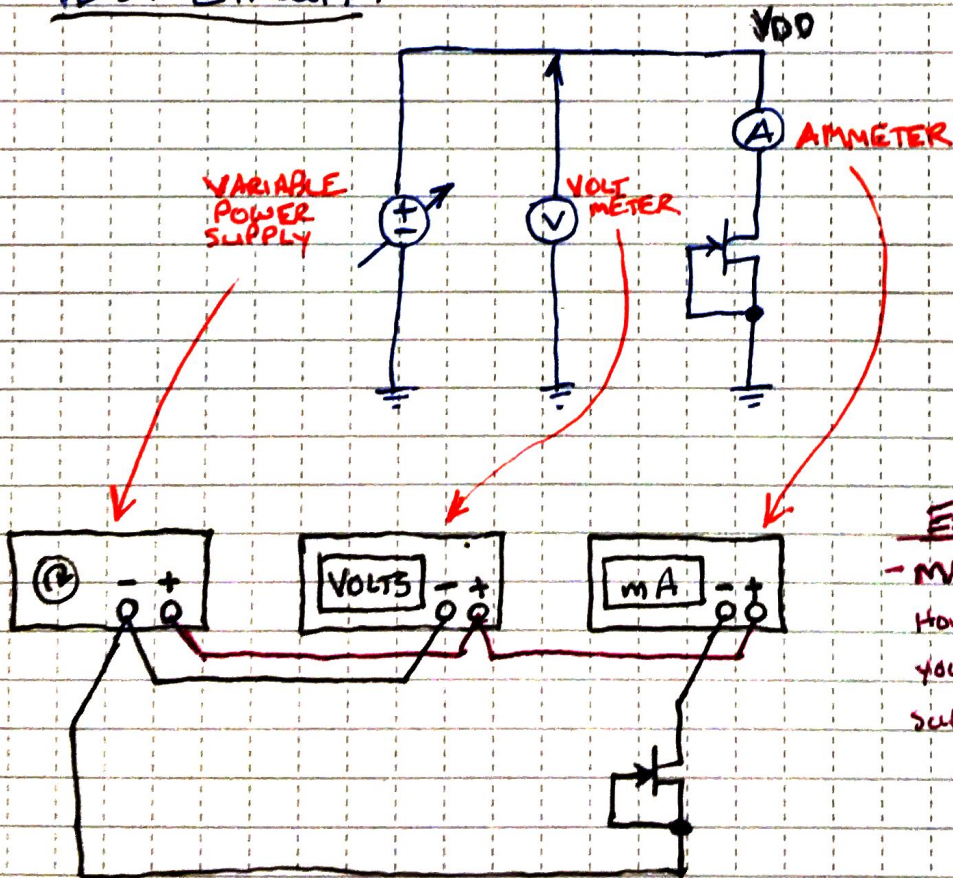 VDD
+
-
V
A
AMMETER
VARIABLE
POWER
SUPPLY
VOLT
METER
- +
VOLTS
- +
mA
- +